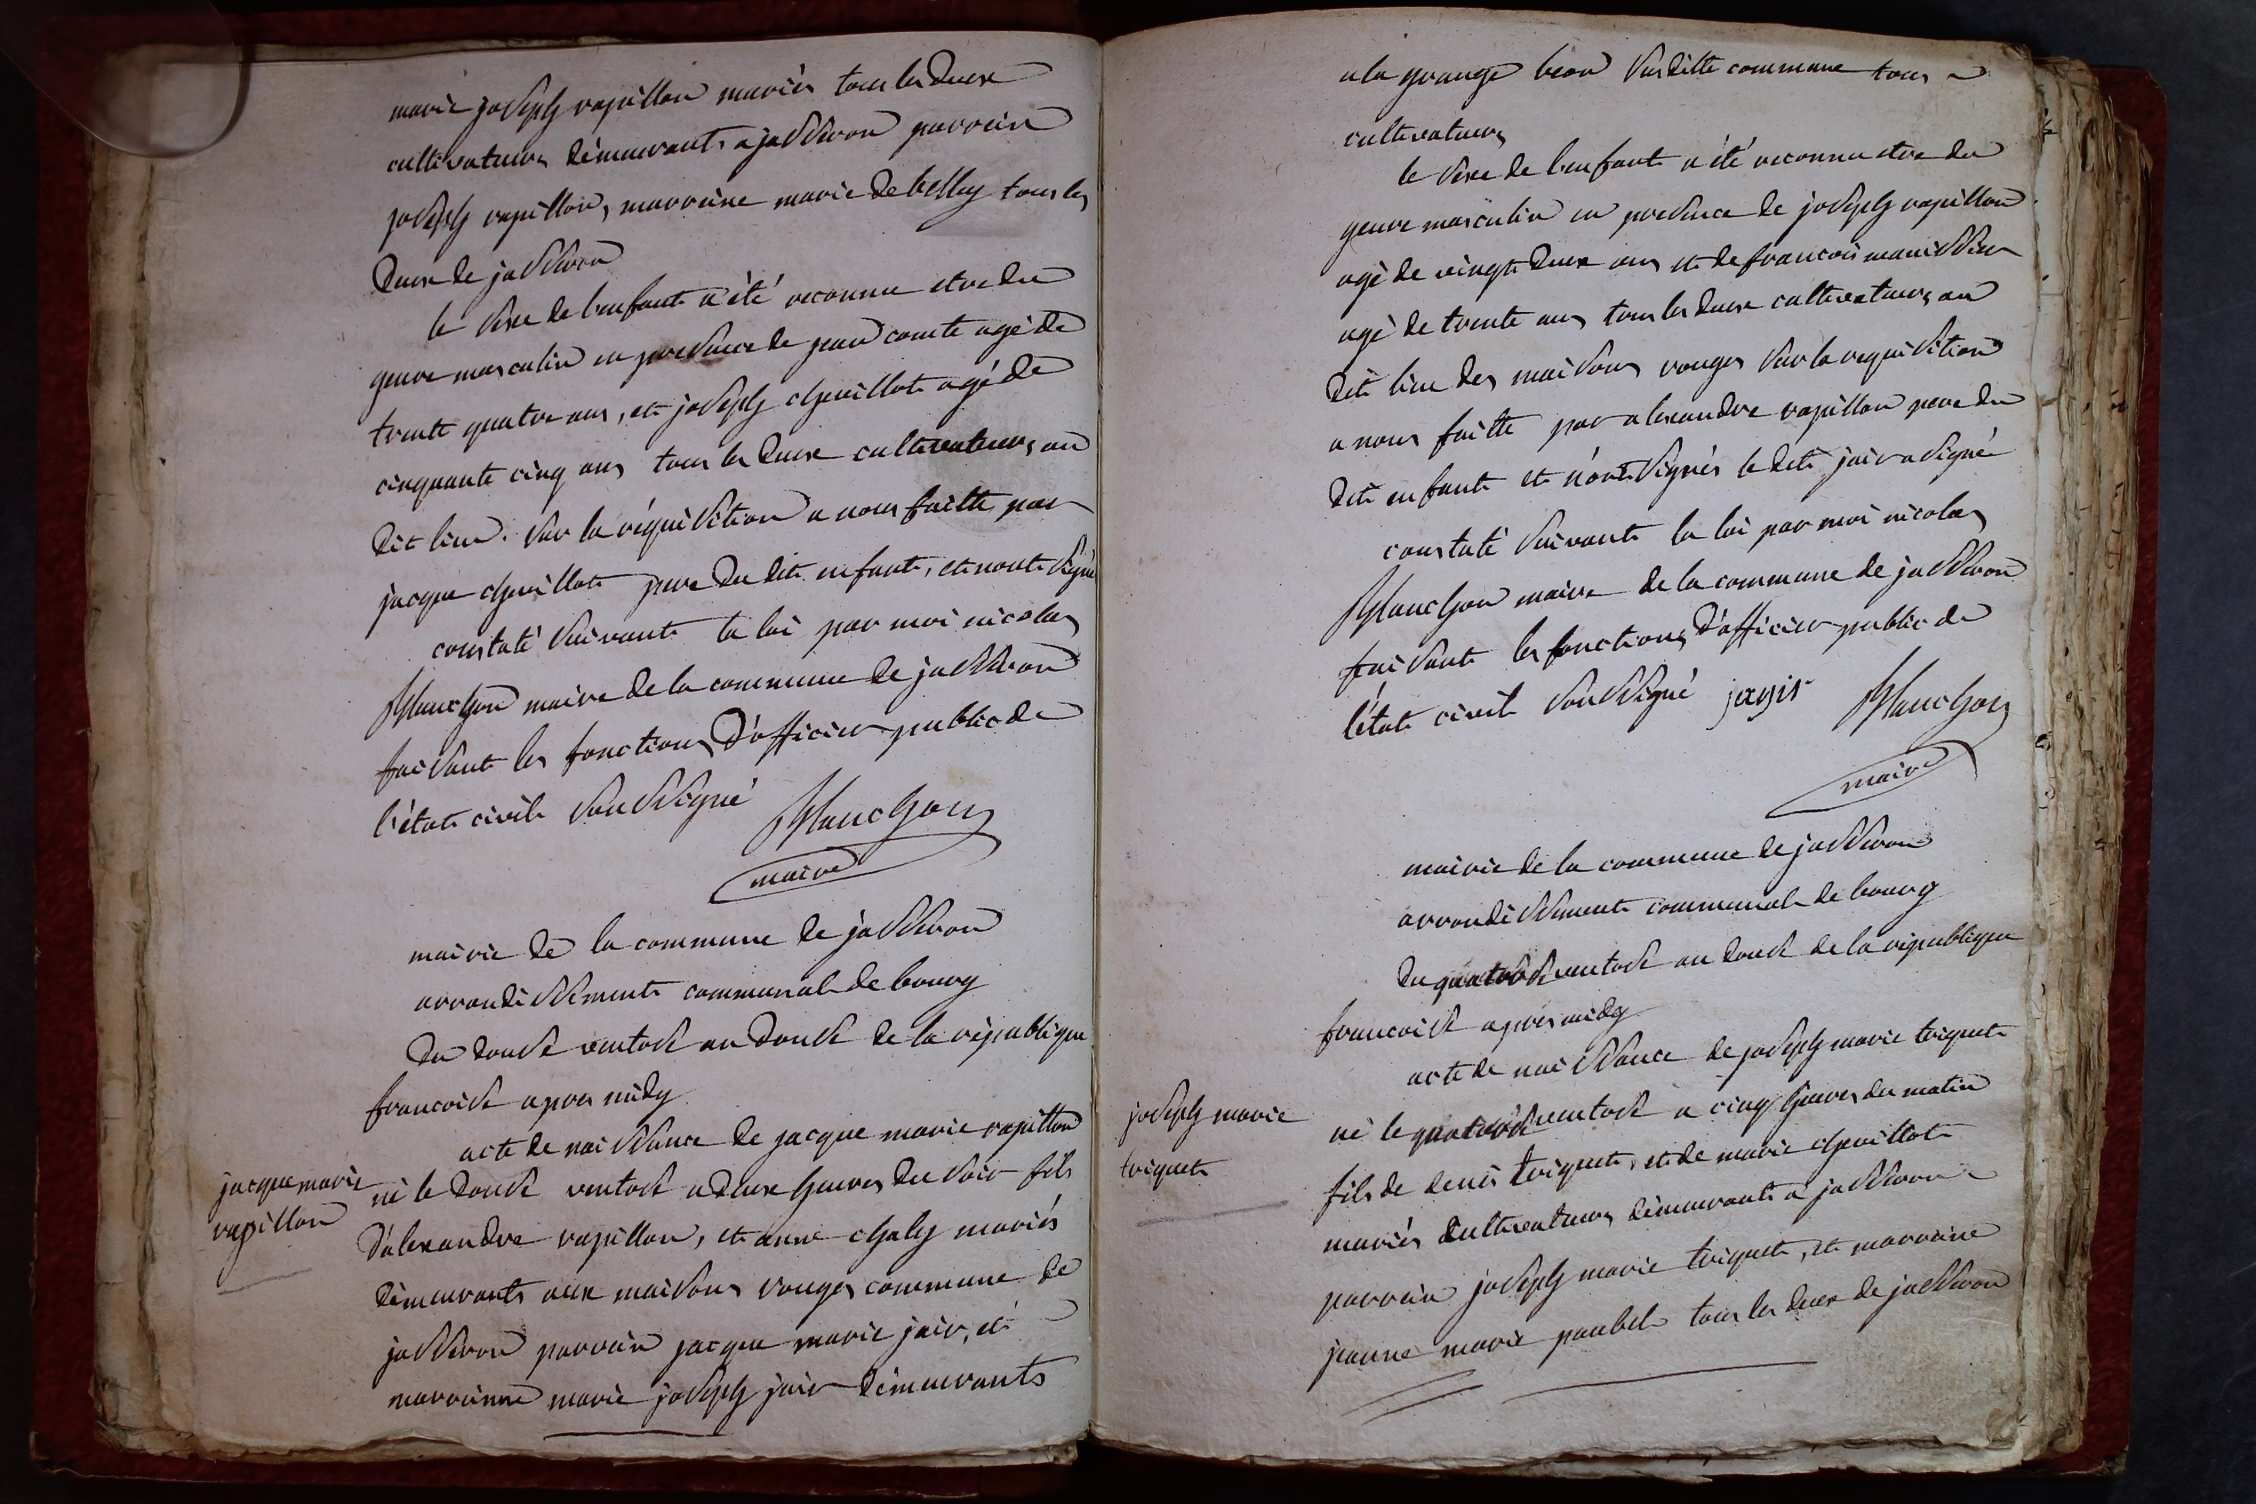 marie joseph rapillon mariés tous les deux
cultivateurs démeurants a jasseron parrein
joseph rapillon, marreine marie debelley tous les
deux de jasseron
le sexe de l'enfant a été reconnu etre du
genre masculin en presence de jean comte agé de
trente quatre ans, et joseph chevillot agé de
cinquante cinq ans tous les deux cultivateurs au
dit lieu. sur la réquisition a nous faitte par
jacque chevillot pere du dit enfant, et n'ont signé
constaté suivant la loi par moi nicolas
planchon maire de la commune de jasseron
faisant les fonctions d'officier public de
l'état civil soussigné planchon
maire
mairie de la commune de jasseron
arrondissement communal de bourg
Du douse ventose an douse de la république
francoise apres midy
acte de naissance de jacque marie rapillon
né le douse ventose a deux heures du soir fils
d'alexandre rapillon, et anne chaley mariés
démeurants aux maisons rouges commune de
jasseron parrein jacque marie jair, et
marreinne marie joseph jair démeurants
jacque marie
rapillon
a la grange beon susditte commune tous
cultivateurs
le sexe de l'enfant a été reconnu etre du
genre masculin en presence de joseph rapillon
agé de vingt deux ans et de francois manissier
agé de trente ans tous les deux cultivateurs au
dit lieu des maisons rouges sur la requisition
a nous faitte par alexandre rapillon pere du
dit enfant et n'ont signés le dit jair a signé
constaté suivant la loi par moi nicolas
planchon maire de la commune de jasseron
faisant les fonctions d'officier public de
l'état civil soussigné planchon
maire
mairie de la commune de jasseron
arrondissement communal de bourg
du quatorse ventose an douse de la république
francoise apres midy
acte de naissance de joseph marie triquet
né le quatorse ventose a cinq heures du matin
fils de denis triquet, et de marie chevillot
mariés cultivateurs démeurants a jasseron
parrein joseph marie triquet, et marreine
jeanne marie paubel tous les deux de jasseron
joseph marie
triquet